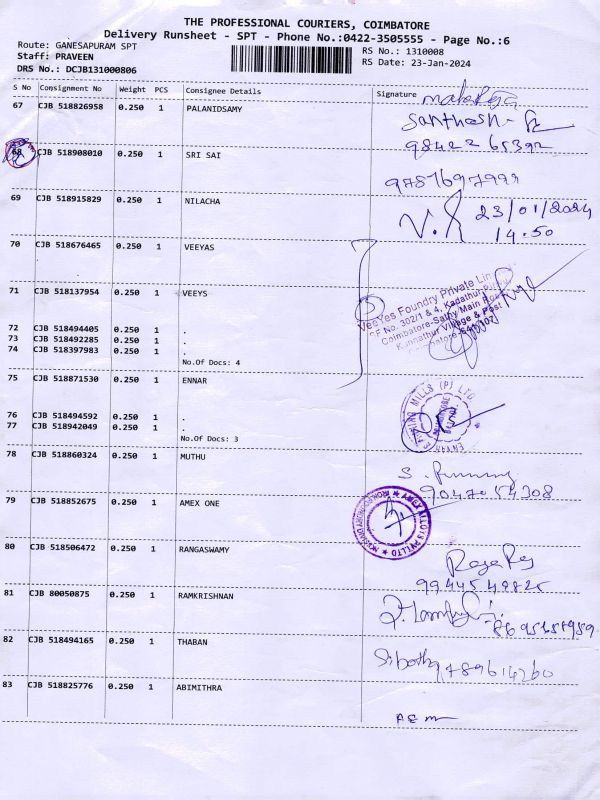 THE PROFESSIONAL COURIERS, COIMBATORE
Delivery Runsheet - SPT - Phone No.:0422-3505555 - Page No.:6
Route: GANESAPURAM SPT
RS No.: 1310008
Staff: PRAVEEN
RS Date: 23-Jan-2024
DRS No.: DCJB131000806
S No Consignment No Weight PCS Consignee Details Signature
67 CJB 518826958 0.250 1 PALANIDSAMY
Santhosh
98422 65392
68 CJB 518908010 0.250 1 SRI SAI
69 CJB 518915829 0.250 1 NILACHA
23/01/2024
14.50
70 CJB 518676465 0.250 1 VEEYAS
71 CJB 518137954 0.250 1 VEEYS
VeeYes Foundry Private Lim
SF No. 302/1 & 4, Kadathur Pudur
Coimbatore-Sathy Main Road
Kunnathur Village & Post
72 CJB 518494405 0.250 1 .
73 CJB 518492285 0.250 1 .
74 CJB 518397983 0.250 1 .
No.Of Docs: 4
75 CJB 518871530 0.250 1 ENNAR
MILLS (P) LTD
76 CJB 518494592 0.250 1 .
77 CJB 518942049 0.250 1 .
No.Of Docs: 3
78 CJB 518860324 0.250 1 MUTHU
90470 54308
79 CJB 518852675 0.250 1 AMEX ONE
AMEX ALLOYS PVT LTD
80 CJB 518506472 0.250 1 RANGASWAMY
81 CJB 80050875 0.250 1 RAMKRISHNAN
82 CJB 518494165 0.250 1 THABAN
9789614260
83 CJB 518825776 0.250 1 ABIMITHRA